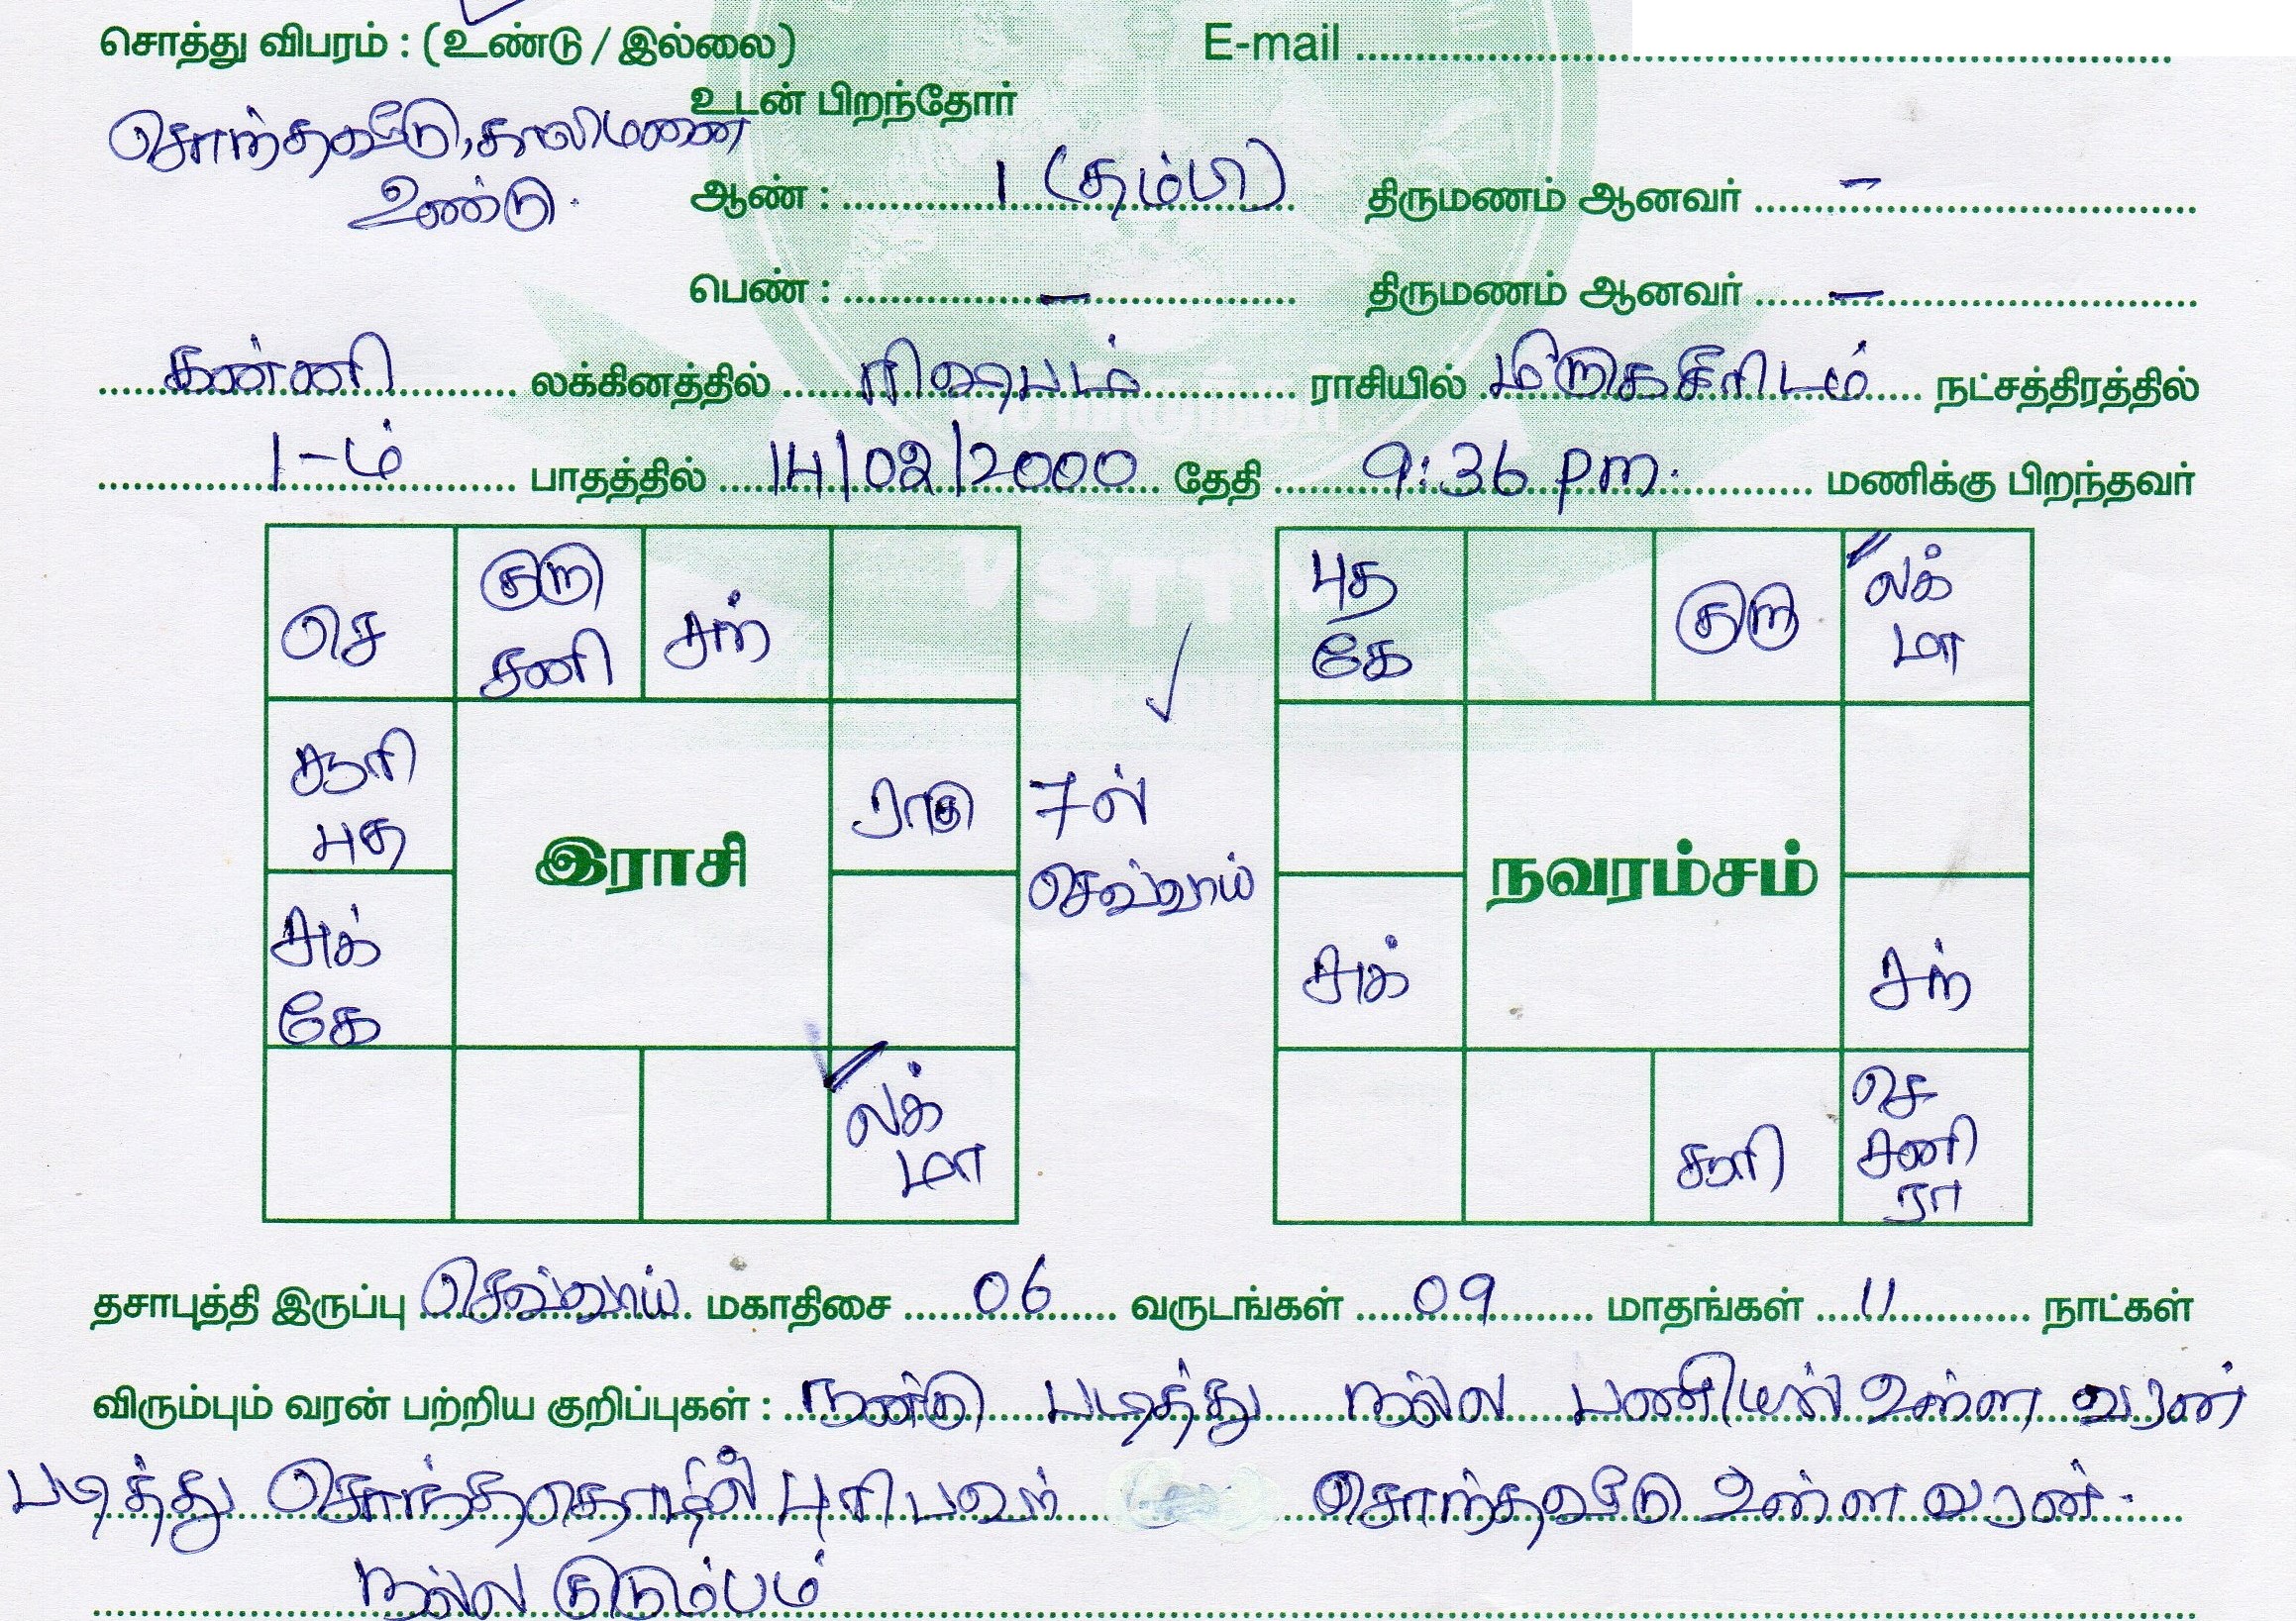 சொத்து விபரம் : (உண்டு / இல்லை) E-mail
உடன் பிறந்தோர்
சொந்தவீடு, காலிமனை
உண்டு.
ஆண் : 1 (தம்பி) திருமணம் ஆனவர் –
பெண் : – திருமணம் ஆனவர் –
கன்னி லக்கினத்தில் ரிஷபம் ராசியில் மிருகசீரிடம் நட்சத்திரத்தில்
1-ம் பாதத்தில் 14/02/2000 தேதி 9:36 pm. மணிக்கு பிறந்தவர்
செ
குரு
சனி
சந்
சூரி
புத
ராகு
சுக்
கே
லக்
மா
இராசி
7ல்
செவ்வாய்
புத
கே
குரு
லக்
மா
சுக்
சந்
சூரி
செ
சனி
ரா
நவரம்சம்
தசாபுத்தி இருப்பு செவ்வாய் மகாதிசை 06 வருடங்கள் 09 மாதங்கள் 11 நாட்கள்
விரும்பும் வரன் பற்றிய குறிப்புகள் : நன்கு படித்து நல்ல பணியில் உள்ள வரன்
படித்து சொந்ததொழில் புரிபவர் சொந்தவீடு உள்ள வரன்.
நல்ல குடும்பம்